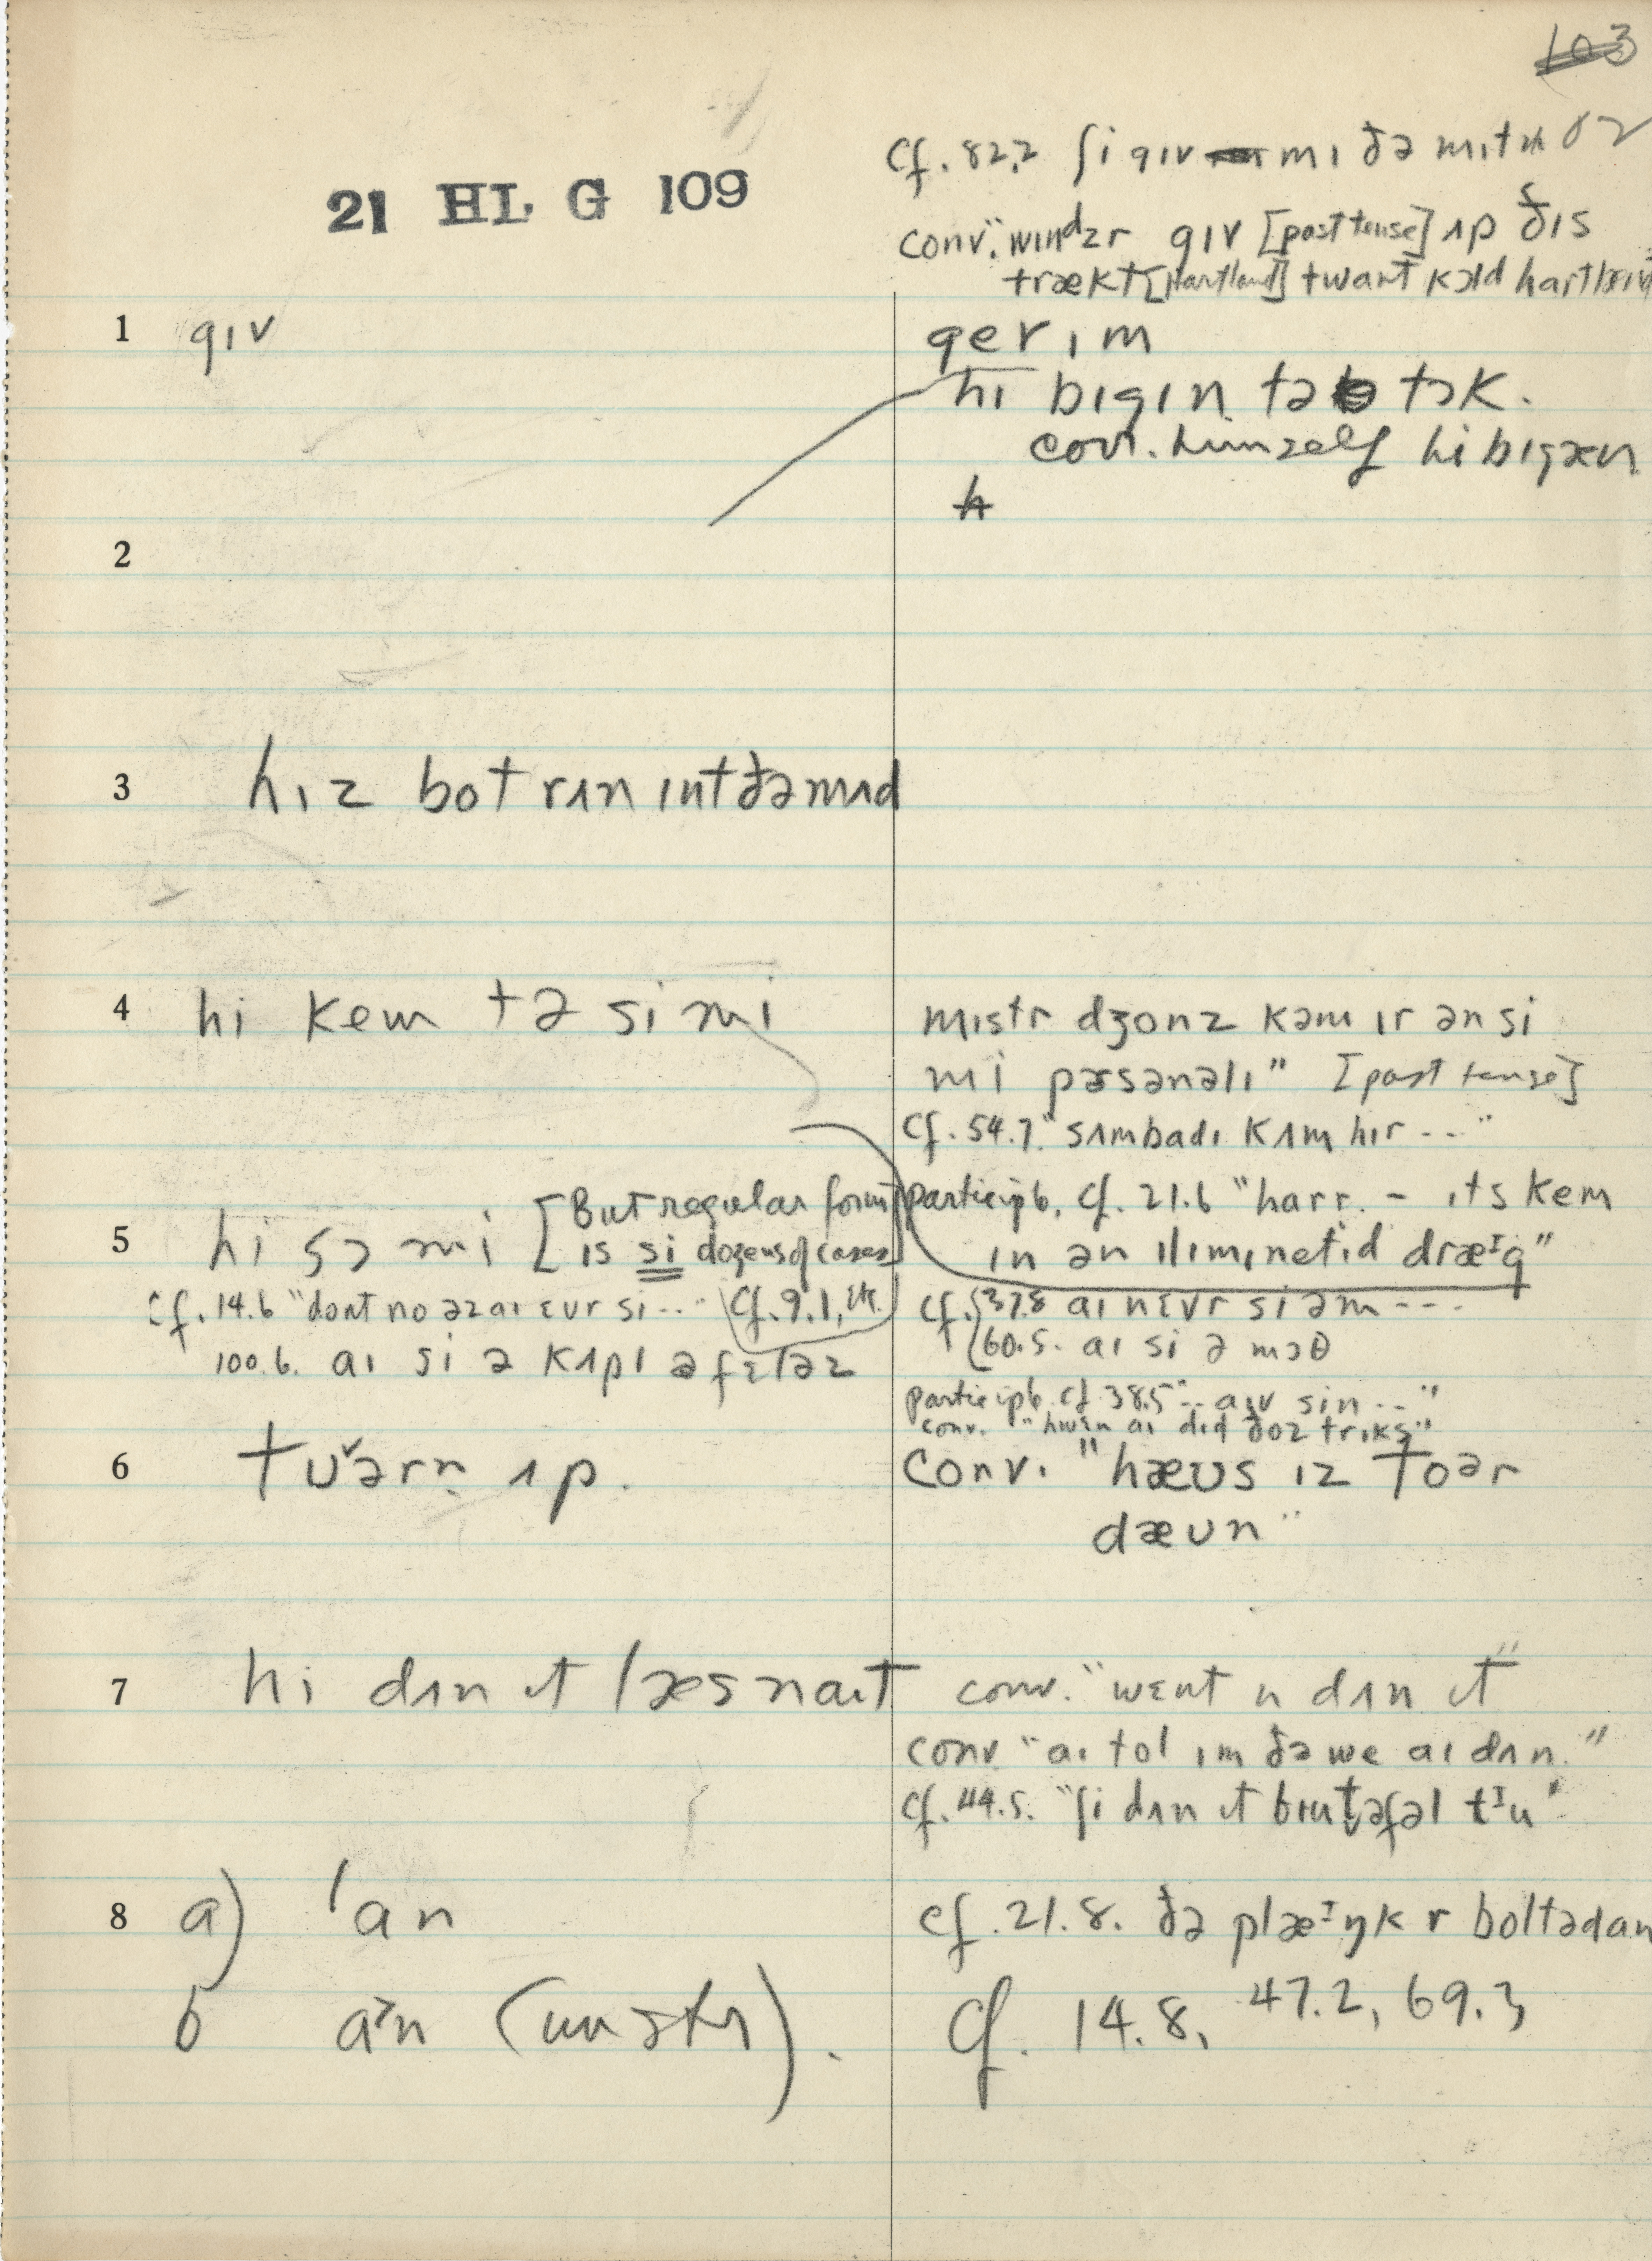 103
cf. 82.2 ʃi gɪv mɪ ðə mɪtn
21 HL G 109
conv. "wɪndzr gɪv [past tense] ʌp ðɪs
trækt [Hartland] twant kɔld hartlænd
1 gɪv
gev ɪm
hɪ bɪgɪn tə tɔk.
conv. himself hi bɪgæn
2
3 hɪz bot rʌn ɪnt ðə mʌd
4 hi kem tə si mi
mɪstr dʒonz kəm ɪr ən si
mi pɚsənəlɪ" [past tense]
cf. 54.7. "sʌmbadɪ kʌm hɪr ..."
participle, cf. 21.6 "harr. - ɪts kem
in ən ɪlɪmɪnetɪd dræᴵg"
5 hi sɔ mi [But regular form
is si dozens of cases]
cf. 14.6 "dont no əz aɪ ɛvr si..." cf. 9.1, etc.
100.6. aɪ si ə kʌpl ə fɛləz
cf. {37.8 aɪ nɛvr si əm ---
{60.5. aɪ si ə mɔθ
participle cf 38.5 "-- aɪv sin --"
conv. "hwɛn aɪ dɪd ðoz trɪks"
6 tʊ̌ərn ʌp.
conv. "hæʊs ɪz toər
dæʊn"
7 hi dʌn ɪt læs naɪt
conv. "wɛnt n dʌn ɪt"
conv. "aɪ tol ɪm ðə we aɪ dʌn."
cf. 44.5. "ʃi dʌn ɪt bɪuṱəfəl tᴵu"
8 a) ˈan
cf. 21.8. ðə plæᴵŋk r boltəd an
b a˃n
cf. 14.8, 47.2, 69.3